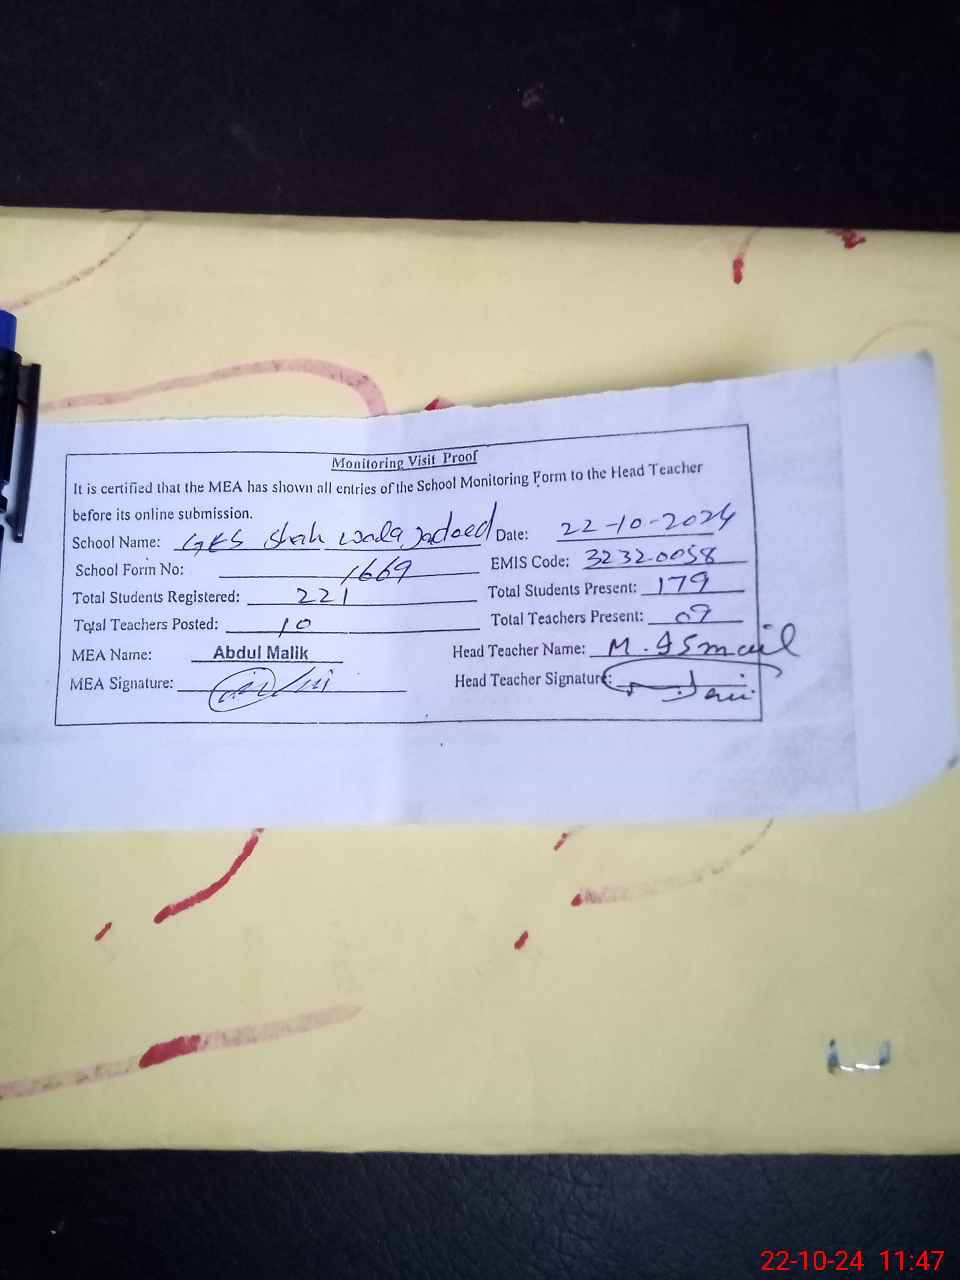 Monitoring Visit Proof
It is certified that the MEA has shown all entries of the School Monitoring Form to the Head Teacher
before its online submission.
School Name: GES Shah wala Jadeed Date: 22-10-2024
School Form No: 1669 EMIS Code: 32320058
Total Students Registered: 221 Total Students Present: 179
Total Teachers Posted: 10 Total Teachers Present: 09
MEA Name: Abdul Malik Head Teacher Name: M. Ismail
MEA Signature: Head Teacher Signature:
22-10-24 11:47